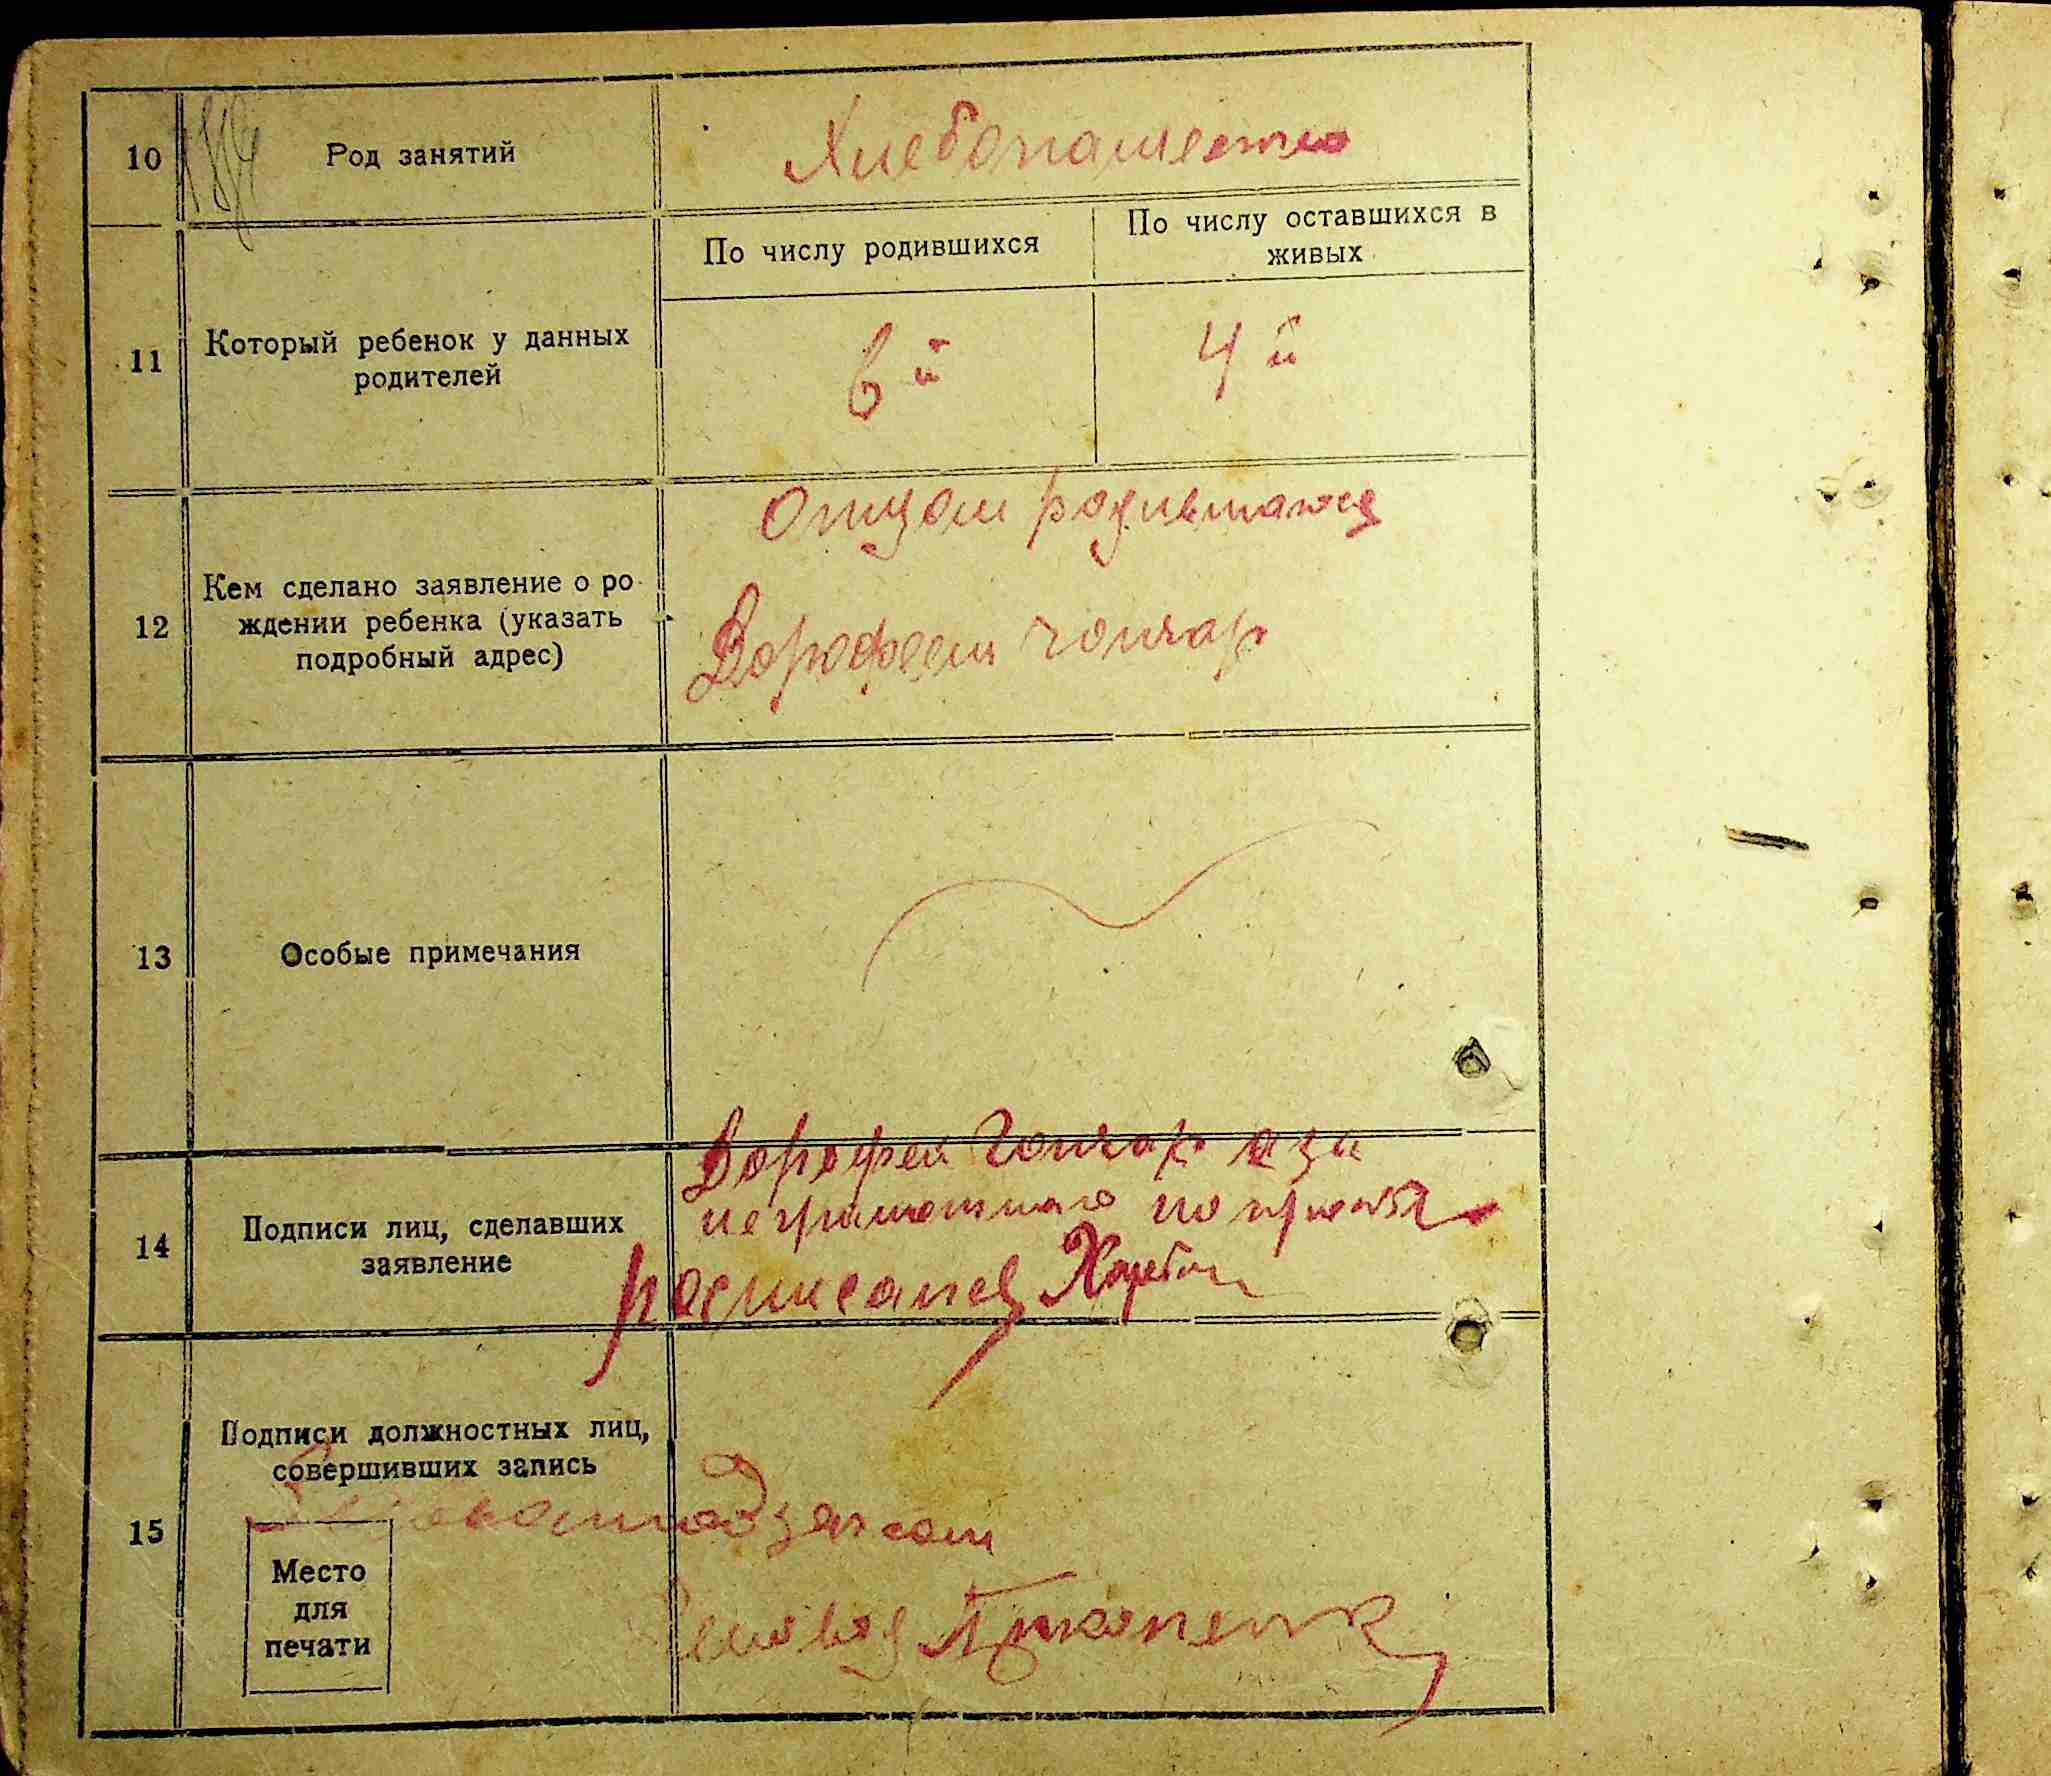 10
Род занятий
Хлебопашество
11
Который ребенок у данных
родителей
По числу родившихся
По числу оставшихся в
живых
6й
4й
12
Кем сделано заявление о ро
ждении ребенка (указать
подробный адрес)
Отцом родившаюся
Дорофеем Гончар
13
Особые примечания
14
Подписи лиц, сделавших
заявление
Дорофей Гончар а за
неграмотного по просьбе
росписался
15
Подписи должностных лиц,
совершивших запись
Место
для
печати